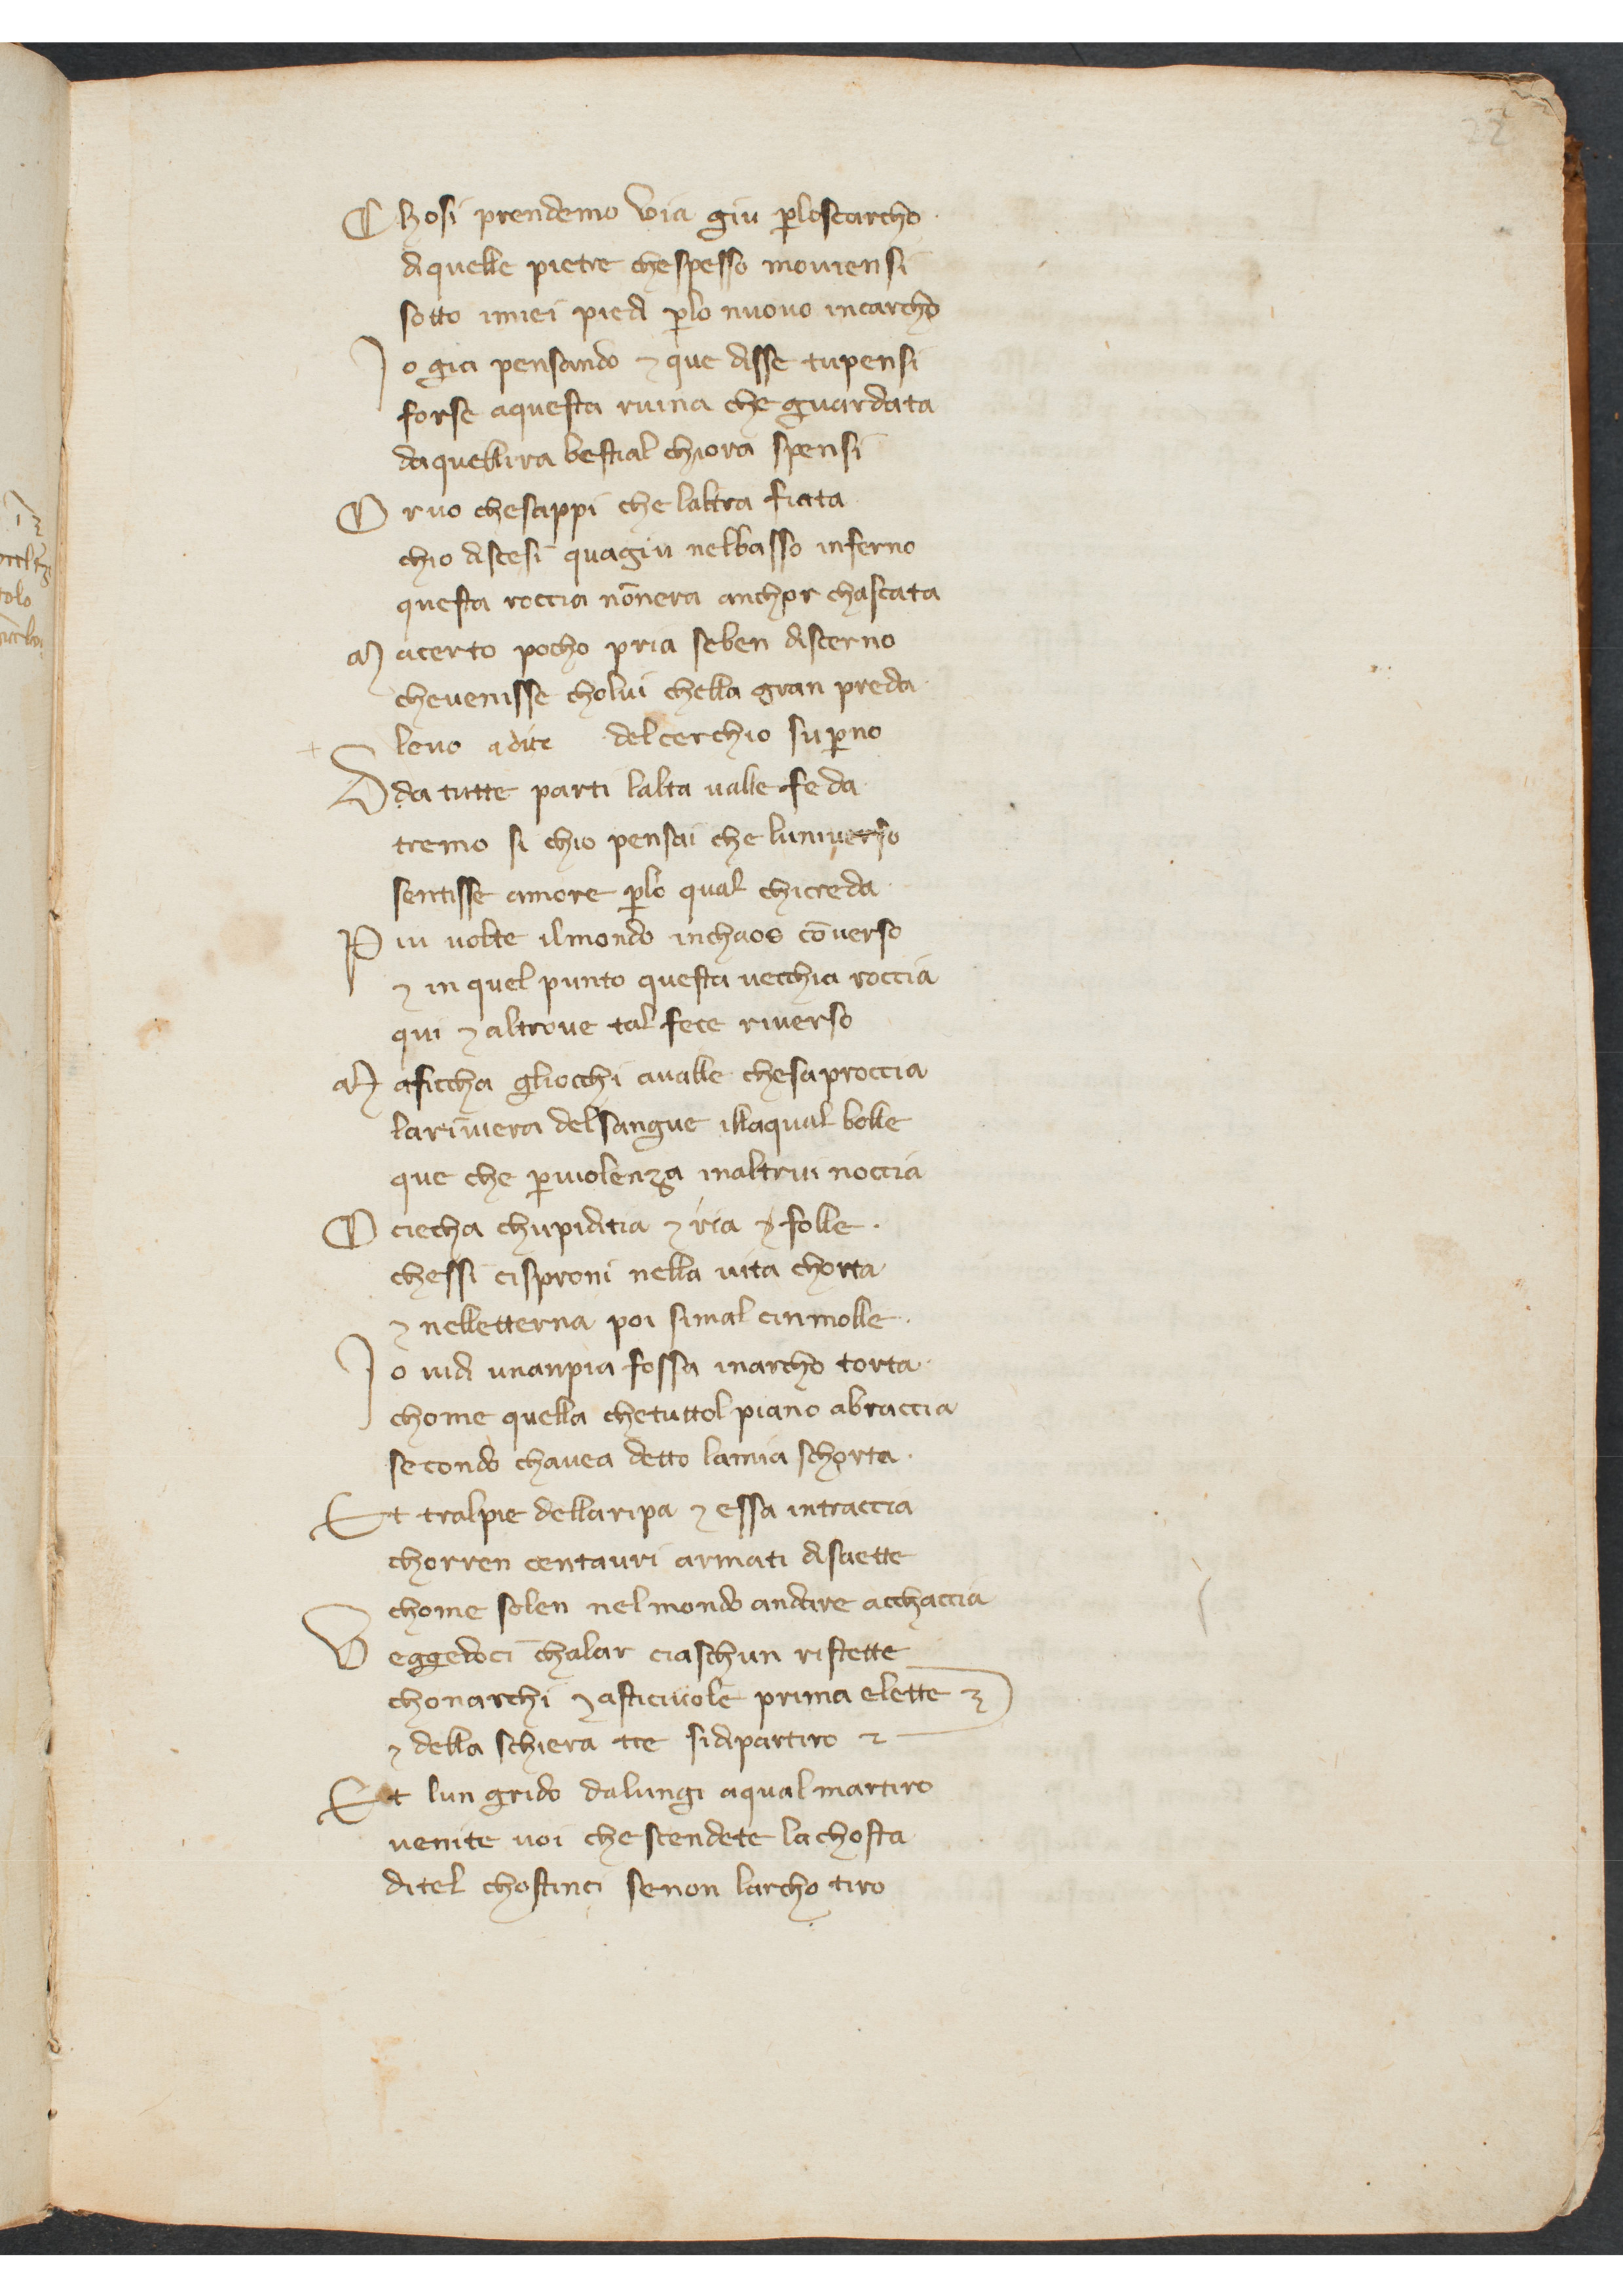 22
Chosi prendemo via giu ꝑloscarcho
diquelle pietre chespesso moviensi
sotto imiei piedi ꝑlo nuovo incarcho
Io gia pensando ⁊ que disse tupensi
forse aquesta ruina che guardata
daquellira bestial chiora spensi
Or vo chesappi che laltra fiata
chio discesi quagiu nelbasso inferno
questa roccia nōnera anchor chascata
Ma certo pocho pria seben discerno
chevenisse cholui chella gran preda
levo adite delcerchio suꝑno
Dda tutte parti lalta valle feda
tremo si chio pensai che luniverso
sentisse amore ꝑlo qual chicreda
Piu volte ilmondo inchaos cōverso
⁊ in quel punto questa vecchia roccia
qui ⁊ altrove tal fece riverso
Ma ficcha gliocchi avalle chesaproccia
lariviera delsangue illaqual bolle
que che ꝑviolenza inaltrui noccia
O ciecha chupiditia ⁊ ria ⁊ folle.
chessi cisproni nella vita chorta
⁊ nelletterna poi simal cinmolle.
Io vidi unanpia fossa inarcho torta.
chome quella chetuttol piano abraccia
secondo chavea detto lamia schorta.
Et tralpie dellaripa ⁊ essa intraccia
chorren centauri armati disaette
chome solen nelmondo andare acchaccia
Veggiedoci chalar ciaschun ristette
chonarchi ⁊ asticiuole prima elette
⁊ della schiera tre sidipartiro
Et lun grido dalungi aqual martiro
venite voi che scendete lachosta
ditel chostinci senon larcho tiro